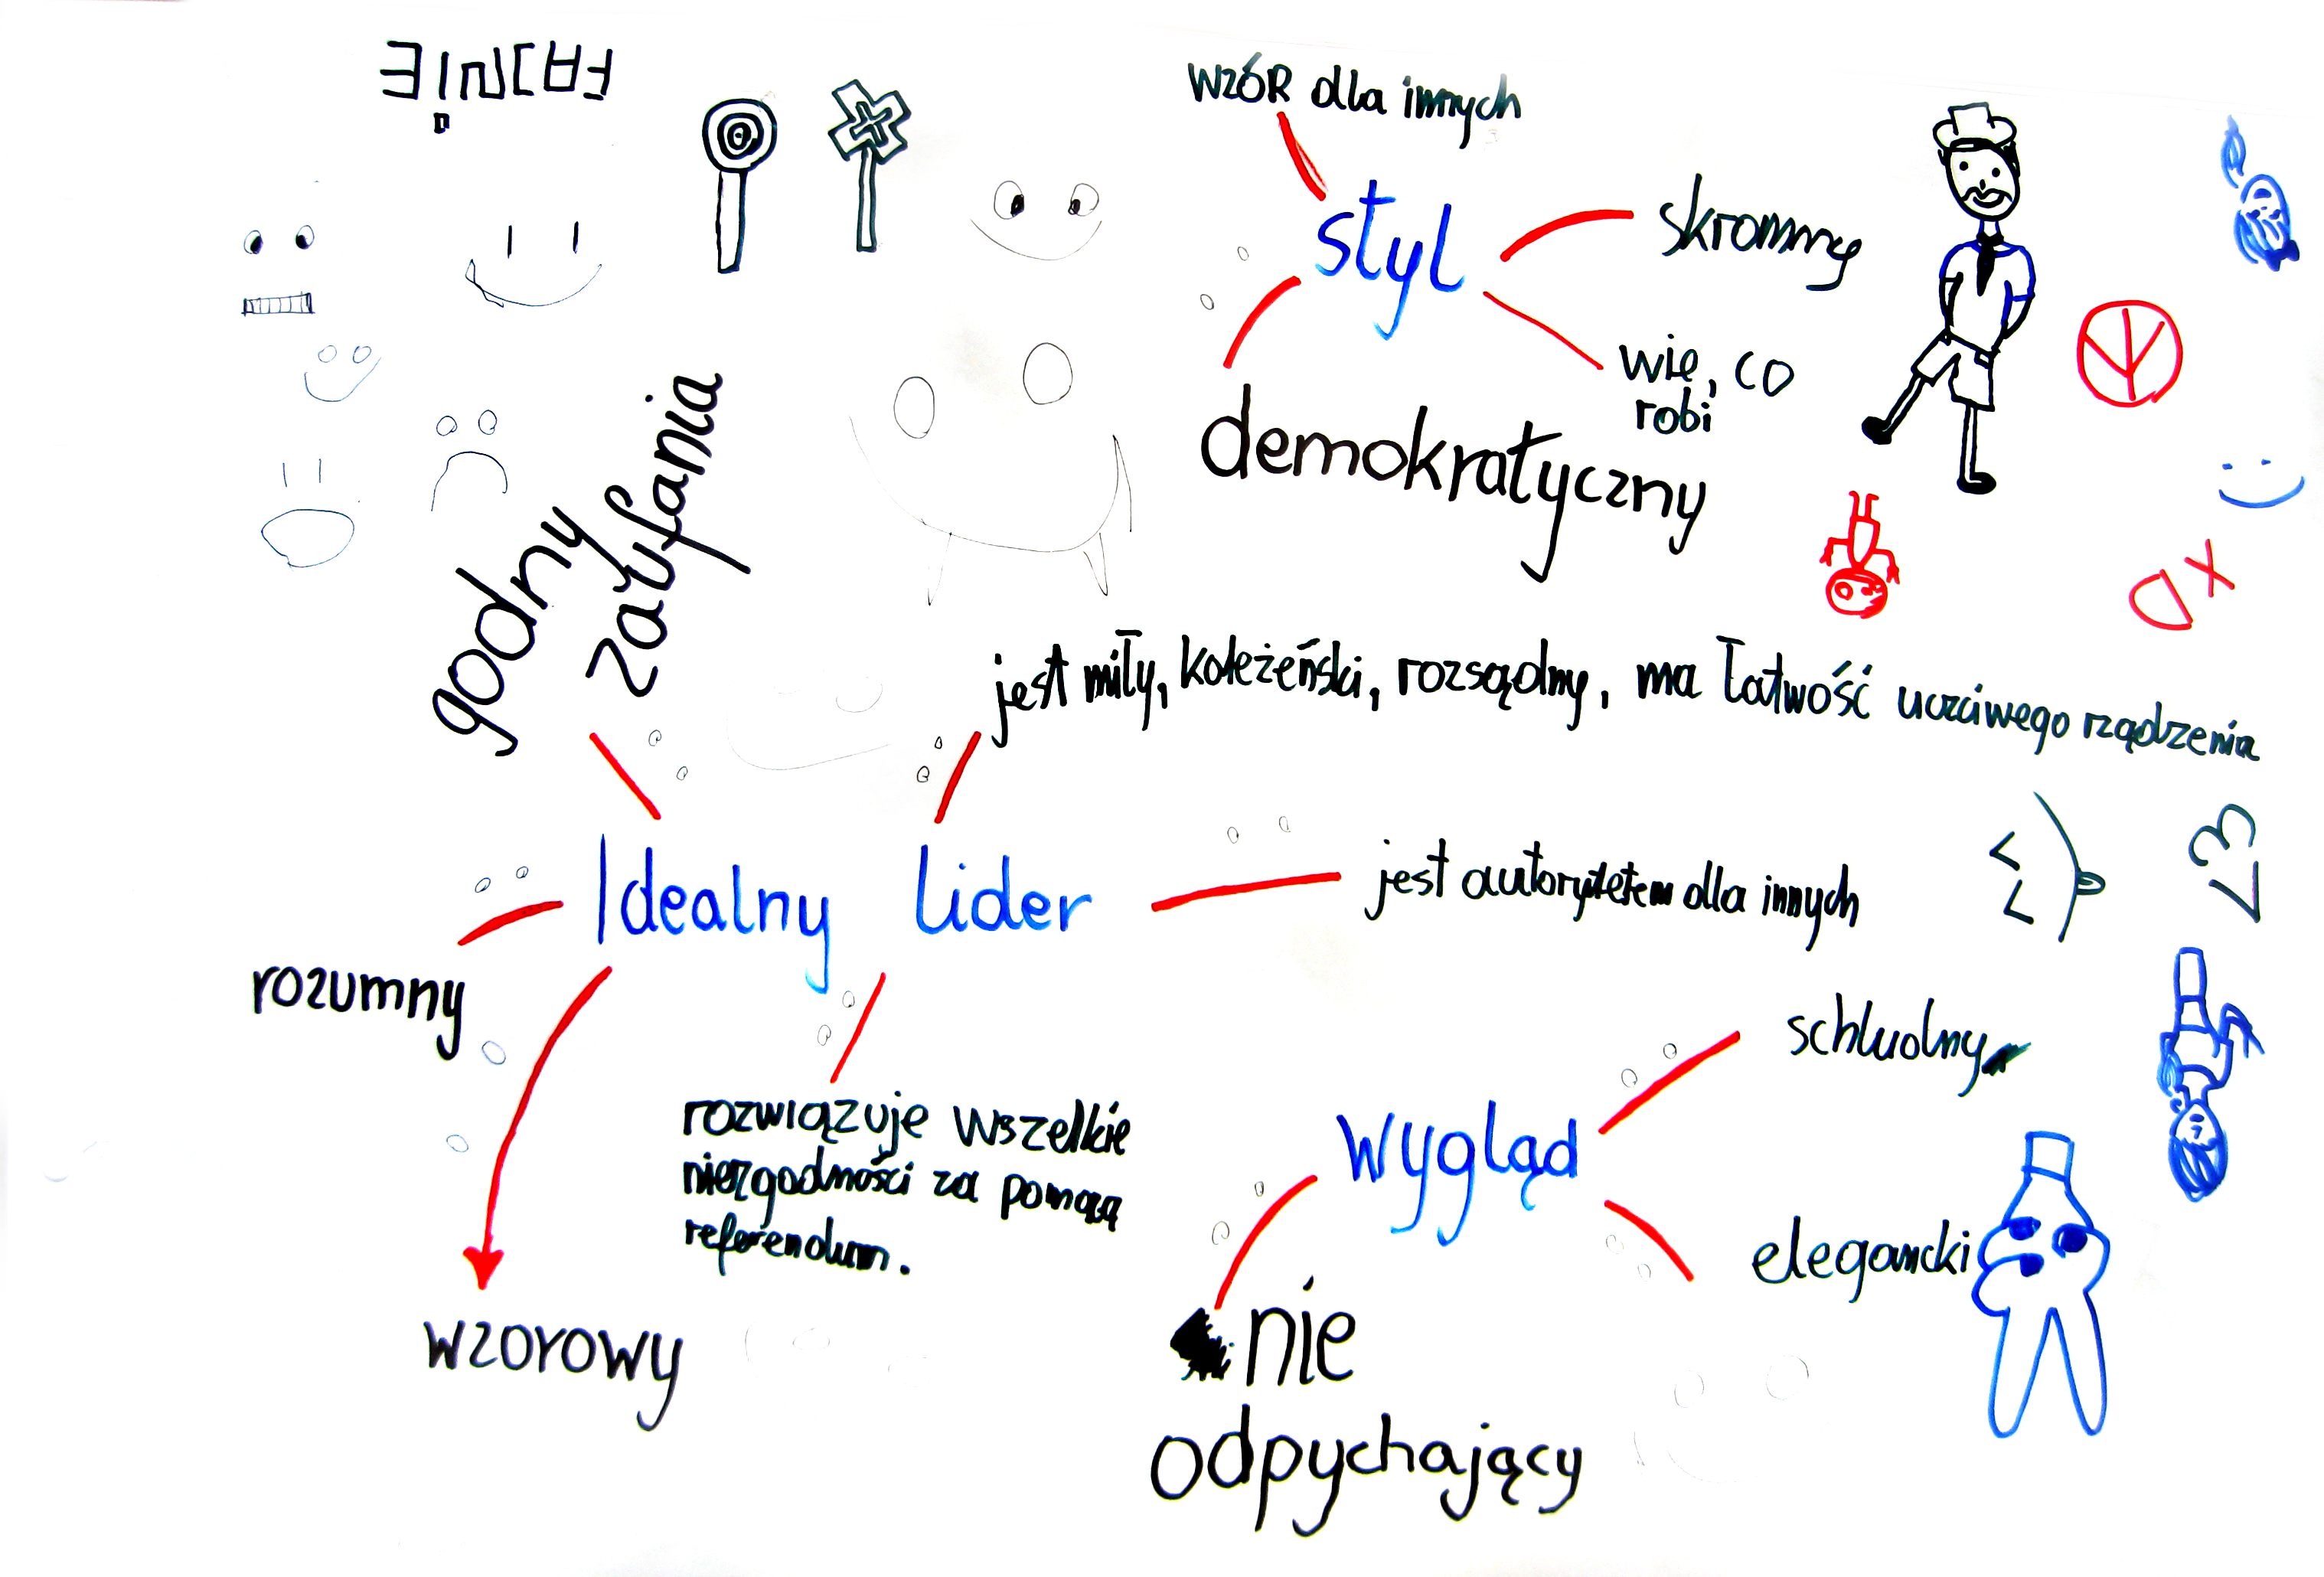 FAJNiE
WZÓR dla innych
styl
skromny
wie, co
robi
demokratyczny
godny
zaufania
jest miły, koleżeński, rozsądny, ma łatwość uczciwego rządzenia
Idealny lider
jest autorytetem dla innych
<3
rozumny
schludny
rozwiązuje wszelkie
niezgodności za pomocą
referendum.
wygląd
elegancki
wzorowy
nie
odpychający